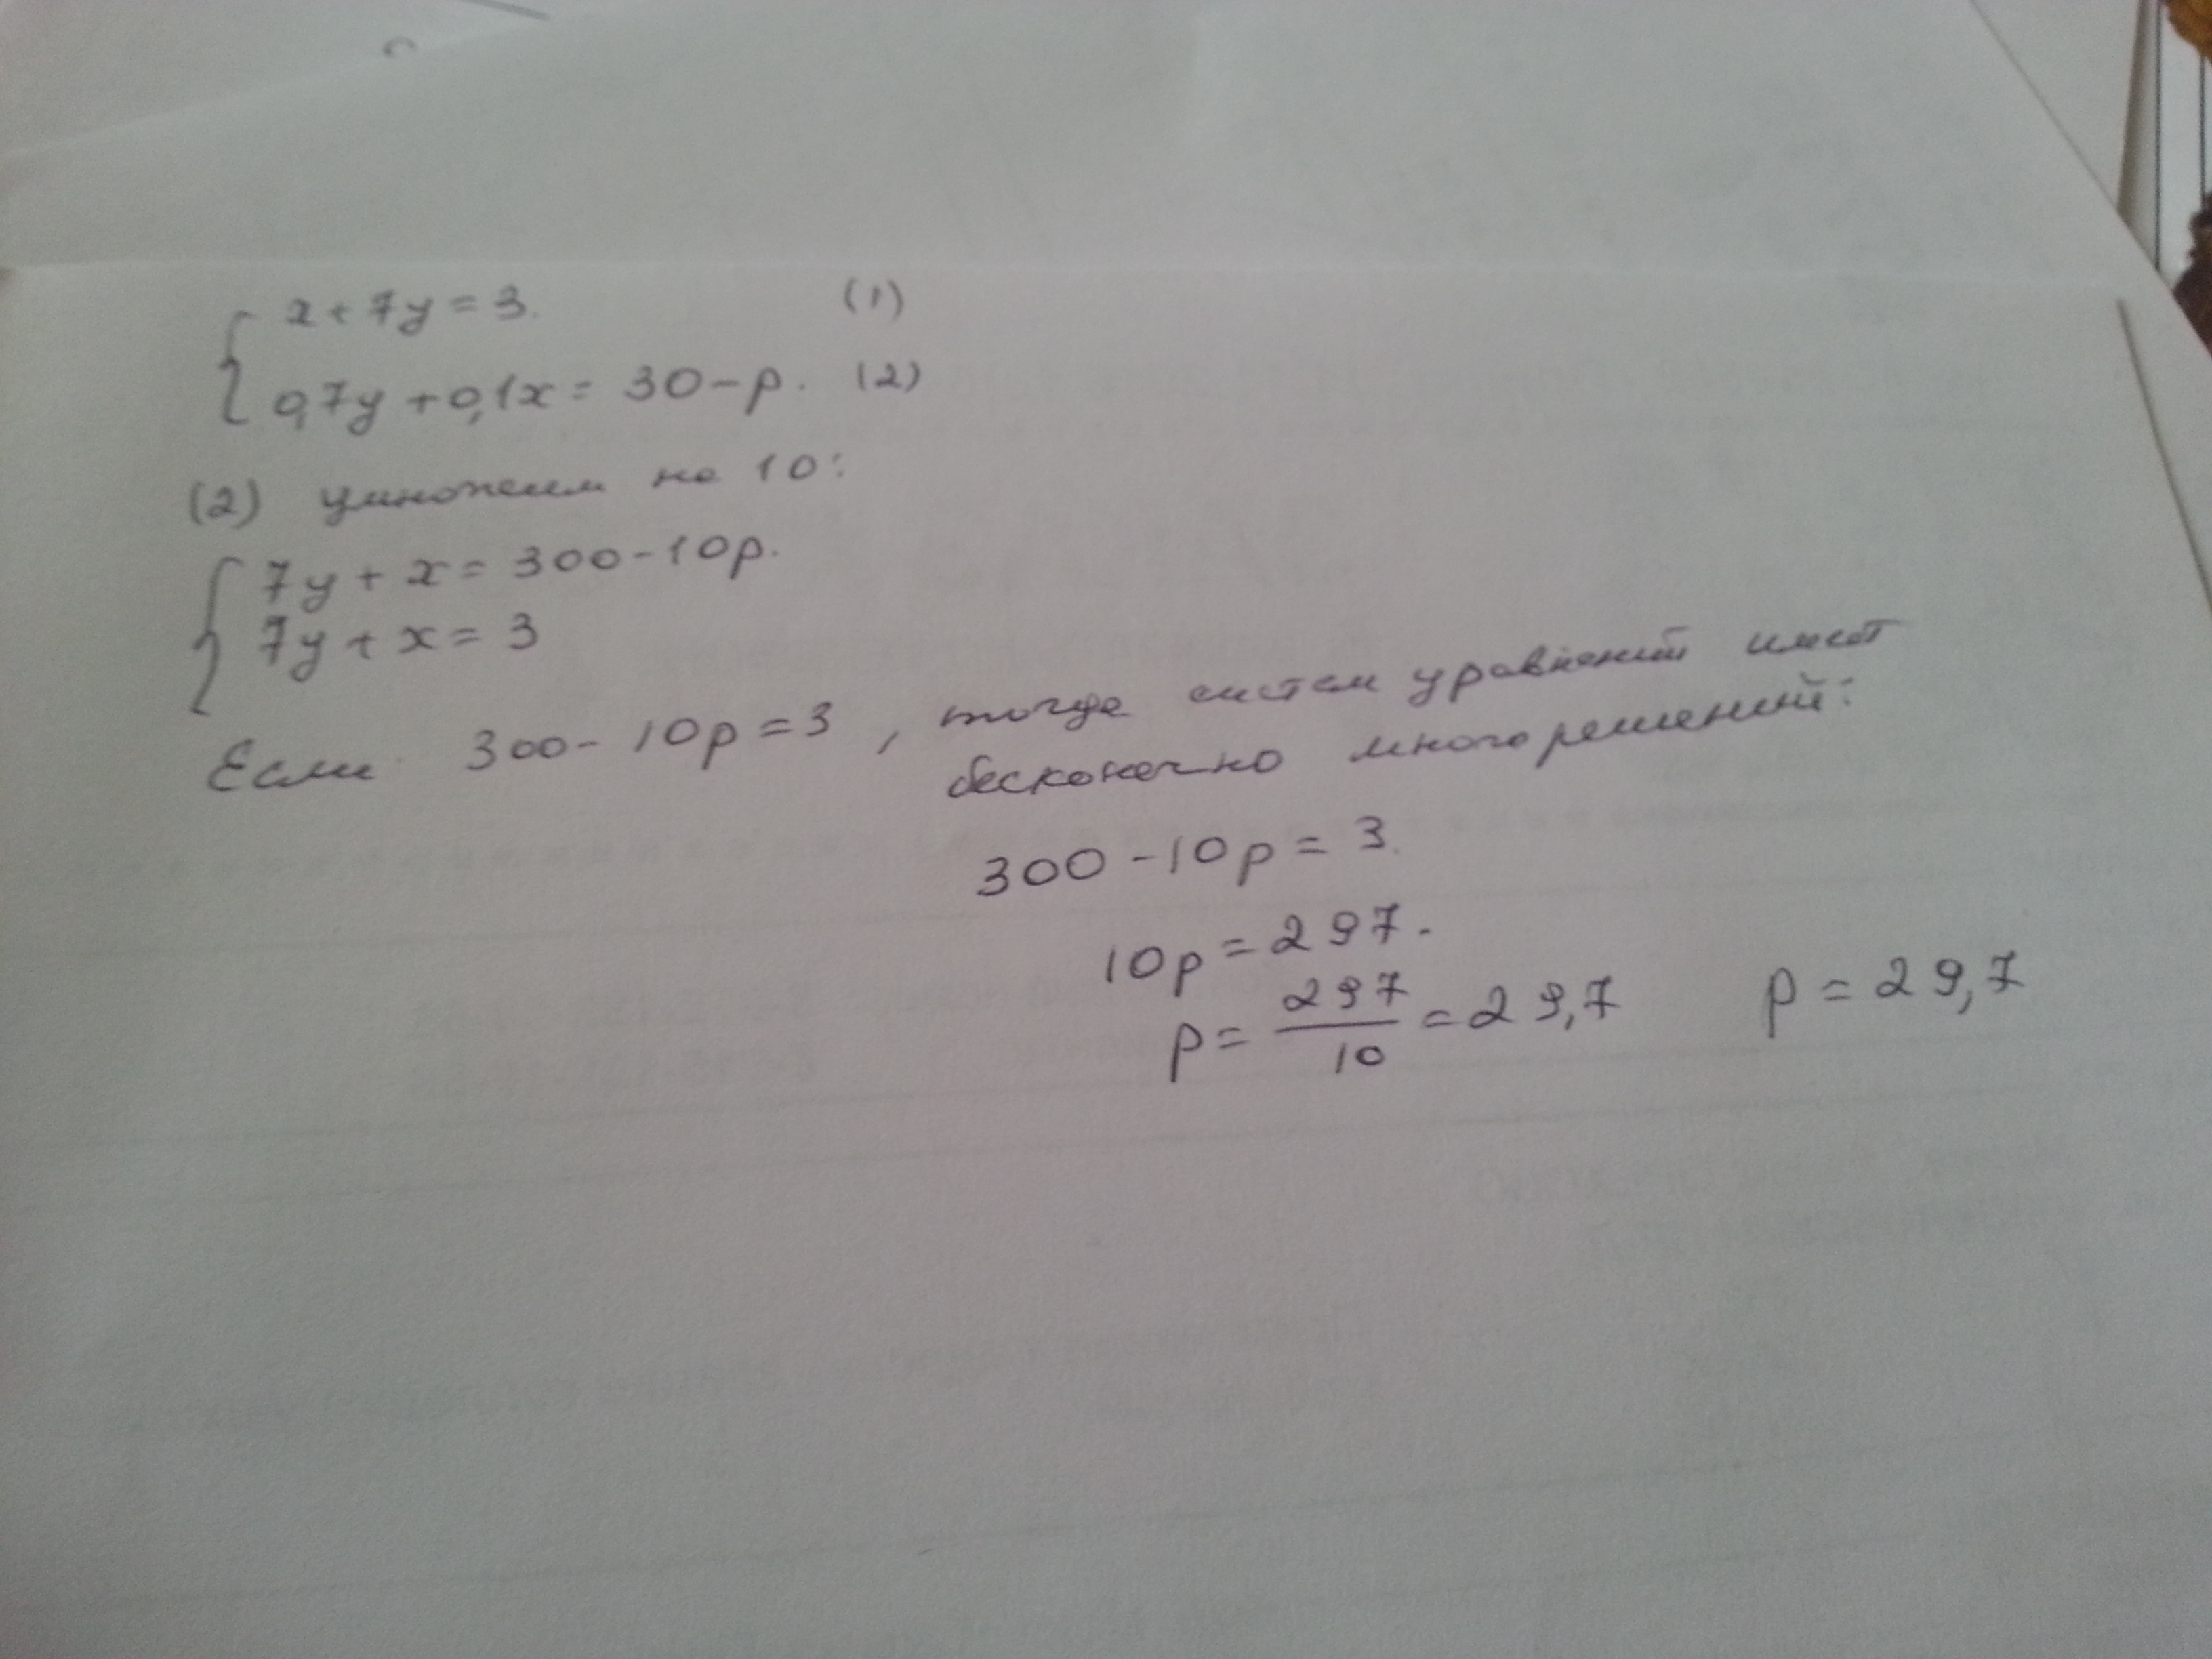 x + 7y = 3. (1)
0,7y + 0,1x = 30 - p. (2)
(2) умножим на 10:
7y + x = 300 - 10p.
7y + x = 3
Если 300 - 10p = 3, тогда систем уравнений имеет
бесконечно много решений:
300 - 10p = 3.
10p = 297.
p = 297/10 = 29,7 p = 29,7